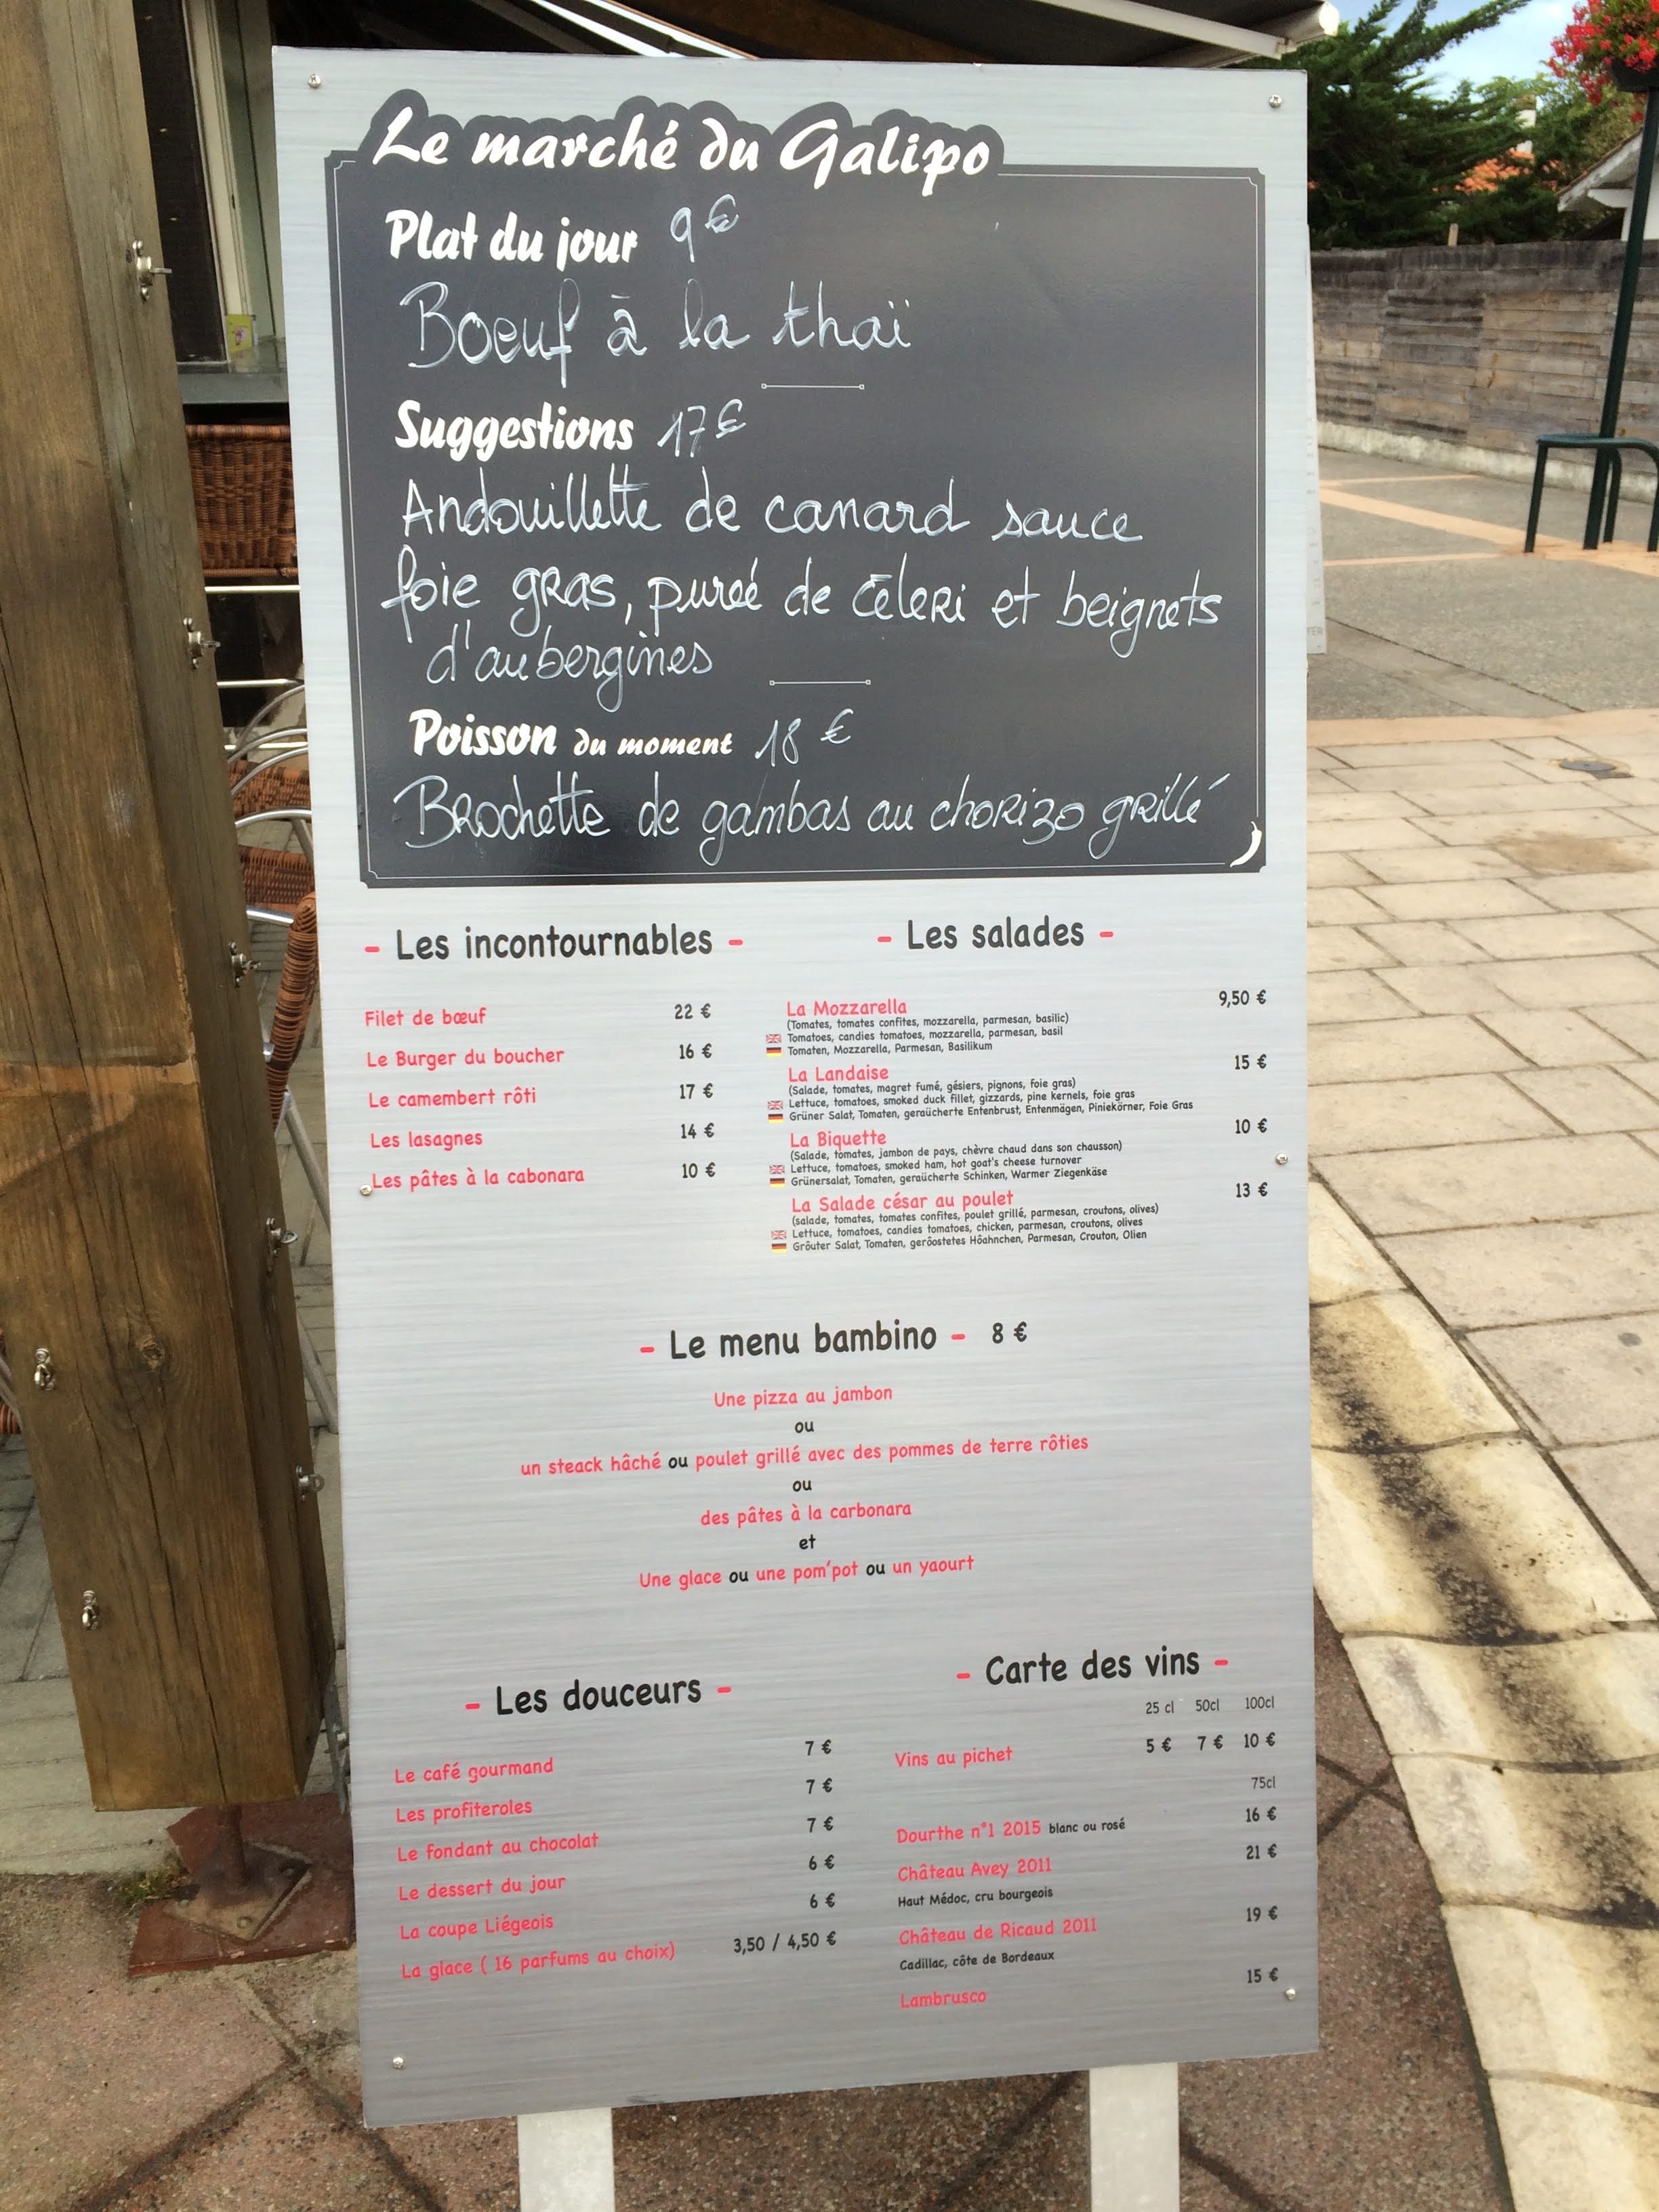 Le marché du Galipo
Plat du jour 9€
Boeuf à la thaï
Suggestions 17€
Andouillette de canard sauce
foie gras, pureé de céleri et beignets
d'aubergines
Poisson du moment 18 €
Brochette de gambas au chorizo grillé
- Les incontournables -
Filet de bœuf 22 €
Le Burger du boucher 16 €
Le camembert rôti 17 €
Les lasagnes 14 €
Les pâtes à la cabonara 10 €
- Les salades -
La Mozzarella 9,50 €
(Tomates, tomates confites, mozzarella, parmesan, basilic)
Tomatoes, candies tomatoes, mozzarella, parmesan, basil
Tomaten, Mozzarella, Parmesan, Basilikum
La Landaise 15 €
(Salade, tomates, magret fumé, gésiers, pignons, foie gras)
Lettuce, tomatoes, smoked duck fillet, gizzards, pine kernels, foie gras
Grüner Salat, Tomaten, geraücherte Entenbrust, Entenmägen, Piniekörner, Foie Gras
La Biquette 10 €
(Salade, tomates, jambon de pays, chèvre chaud dans son chausson)
Lettuce, tomatoes, smoked ham, hot goat's cheese turnover
Grünersalat, Tomaten, geraücherte Schinken, Warmer Ziegenkäse
La Salade césar au poulet 13 €
(salade, tomates, tomates confites, poulet grillé, parmesan, croutons, olives)
Lettuce, tomatoes, candies tomatoes, chicken, parmesan, croutons, olives
Grôuter Salat, Tomaten, gerôostetes Hôahnchen, Parmesan, Crouton, Olien
- Le menu bambino - 8 €
Une pizza au jambon
ou
un steack hâché ou poulet grillé avec des pommes de terre rôties
ou
des pâtes à la carbonara
et
Une glace ou une pom'pot ou un yaourt
- Les douceurs -
Le café gourmand 7 €
Les profiteroles 7 €
Le fondant au chocolat 7 €
Le dessert du jour 6 €
La coupe Liégeois 6 €
La glace ( 16 parfums au choix) 3,50 / 4,50 €
- Carte des vins -
25 cl 50cl 100cl
Vins au pichet 5 € 7 € 10 €
75cl
Dourthe n°1 2015 blanc ou rosé 16 €
Château Avey 2011 21 €
Haut Médoc, cru bourgeois
Château de Ricaud 2011 19 €
Cadillac, côte de Bordeaux
Lambrusco 15 €